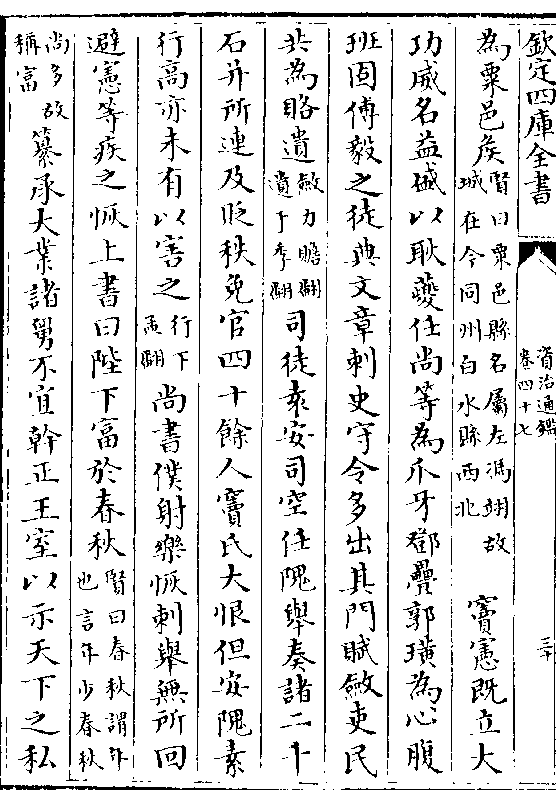 欽定四庫全書
資治通鑑
卷四十七
三十
為粟邑侯賢曰粟邑縣名屬左馮翊故
城在今同州白水縣西北竇憲既立大
功威名益盛以耿夔任尚等為爪牙鄧疊郭璜為心腹
班固傅毅之徒典文章刺史守令多出其門賦斂吏民
共為賂遺斂力贍翻
遺于季翻司徒袁安司空任隗舉奏諸二千
石并所連及貶秩免官四十餘人竇氏大恨但安隗素
行高亦未有以害之行下
孟翻尚書僕射樂恢刺舉無所回
避憲等疾之恢上書曰陛下富於春秋賢曰春秋謂年
也言年少春秋
尚多故
稱富纂承大業諸舅不宜幹正王室以示天下之私